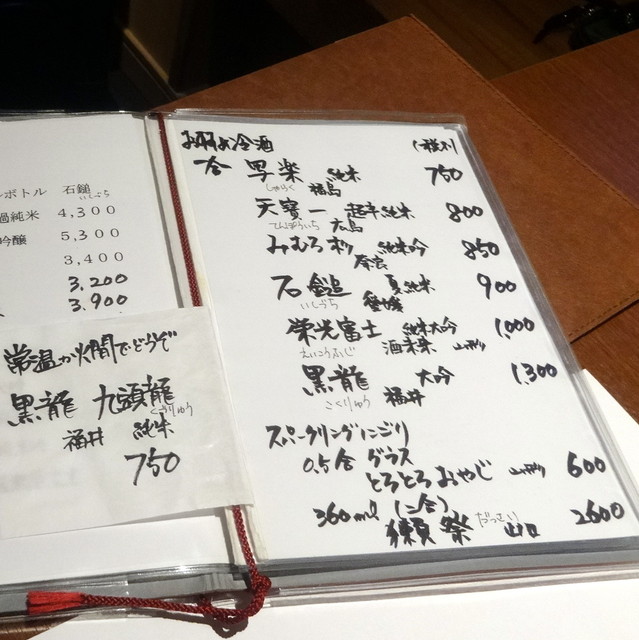 ボトル 石鎚
いしづち
過純米 4,300
吟醸 5,300
3,400
3,200
3,900
常温か火間でどうぞ
黒龍 九頭龍
くずりゅう
福井 純米
750
お羽め冷酒
合 写楽 純米 750
しゃらく 福島
天寶一 超辛純米 800
てんぽういち 広島
みむろ杉 純米吟 850
奈良
石鎚 夏純米 900
いしづち 愛媛
栄光富士 純米大吟 1,000
えいこうふじ 酒未来 山形
黒龍 大吟 1,300
こくりゅう 福井
スパークリングにごり
0.5合 グラス
とろとろおやじ 山形 600
360ml (二合)
獺祭 だっさい 山口 2600